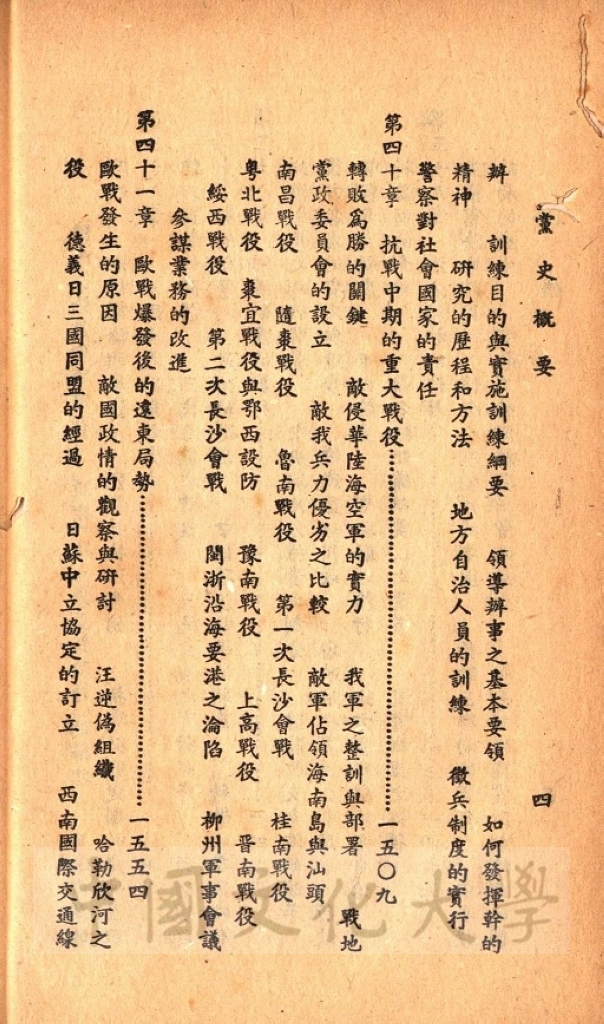 黨史概要
四
辦　訓練目的與實施訓練綱要　領導辦事之基本要領　如何發揮幹的
精神　研究的歷程和方法　地方自治人員的訓練　徵兵制度的實行
警察對社會國家的責任
第四十章　抗戰中期的重大戰役……………………一五〇九
轉敗為勝的關鍵　敵侵華陸海空軍的實力　我軍之整訓與部署　戰地
黨政委員會的設立　敵我兵力優劣之比較　敵軍佔領海南島與汕頭
南昌戰役　隨棗戰役　魯南戰役　第一次長沙會戰　桂南戰役
粵北戰役　棗宜戰役與鄂西設防　豫南戰役　上高戰役　晉南戰役
綏西戰役　第二次長沙會戰　閩浙沿海要港之淪陷　柳州軍事會議
參謀業務的改進
第四十一章　歐戰爆發後的遠東局勢……………………一五五四
歐戰發生的原因　敵國政情的觀察與研討　汪逆偽組織　哈勒欣河之
役　德義日三國同盟的經過　日蘇中立協定的訂立　西南國際交通線
中國文化大學